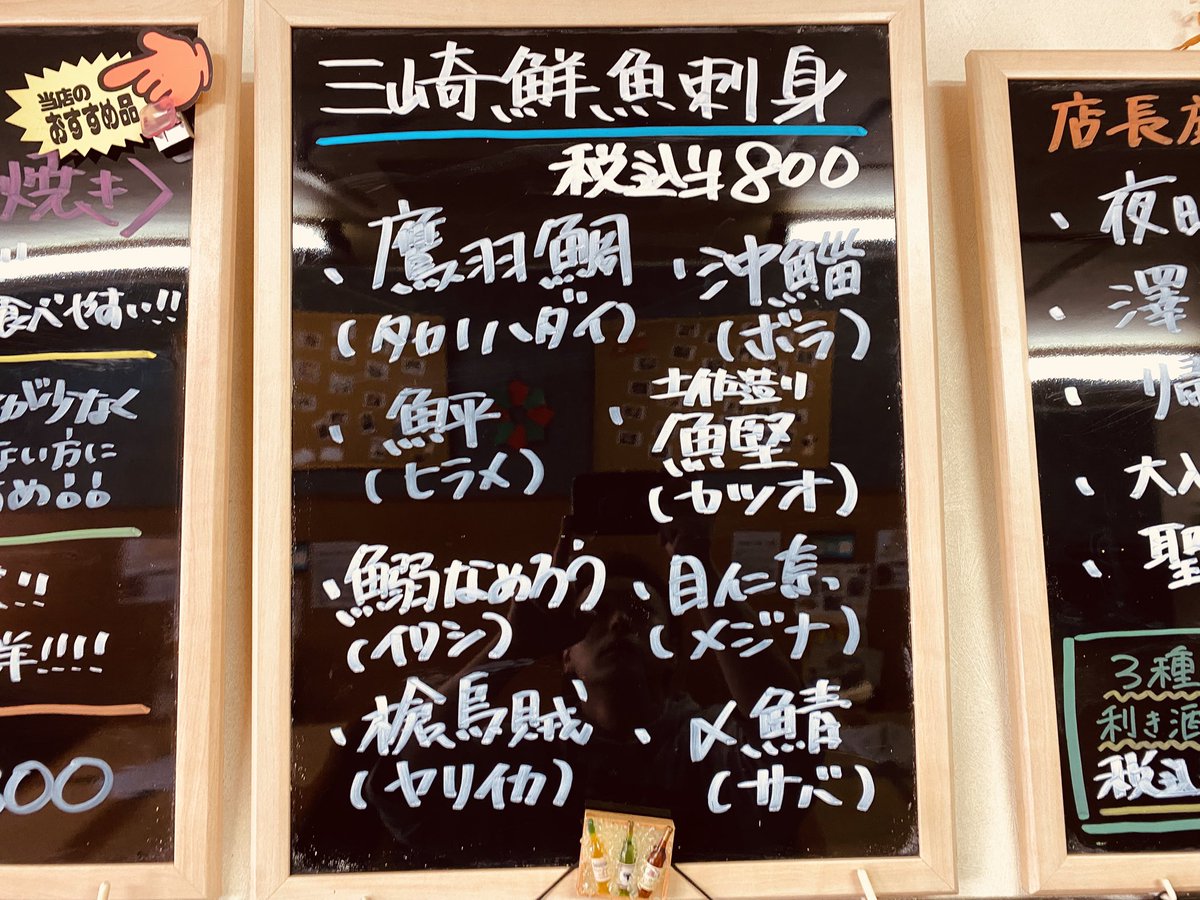 当店の
おすすめ品
焼き〉
食べやすい!!
がらなく
ない方に
め品
!!
!!!!
00
三崎鮮魚刺身
税込¥800
・鷹羽鯛
(タカノハダイ)
・沖鯔
(ボラ)
・鮃
(ヒラメ)
・土佐造り
魚堅
(カツオ)
・鰯なめろう
(イワシ)
・目仁奈
(メジナ)
・槍烏賊
(ヤリイカ)
・〆鯖
(サバ)
店長
・夜
・澤
・
・大
・聖
3種
利き酒
税込